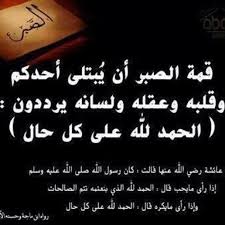 الصبر
قمة الصبر أن يُبتلى أحدكم
وقلبه وعقله ولسانه يرددون :
( الحمد لله على كل حال )
عائشة رضي الله عنها قالت : كان رسول الله صلى الله عليه وسلم
إذا رأى مايحب قال : الحمد لله الذي بنعمته تتم الصالحات
وإذا رأى مايكره قال : الحمد لله على كل حال
رواه ابن ماجة وحسنه